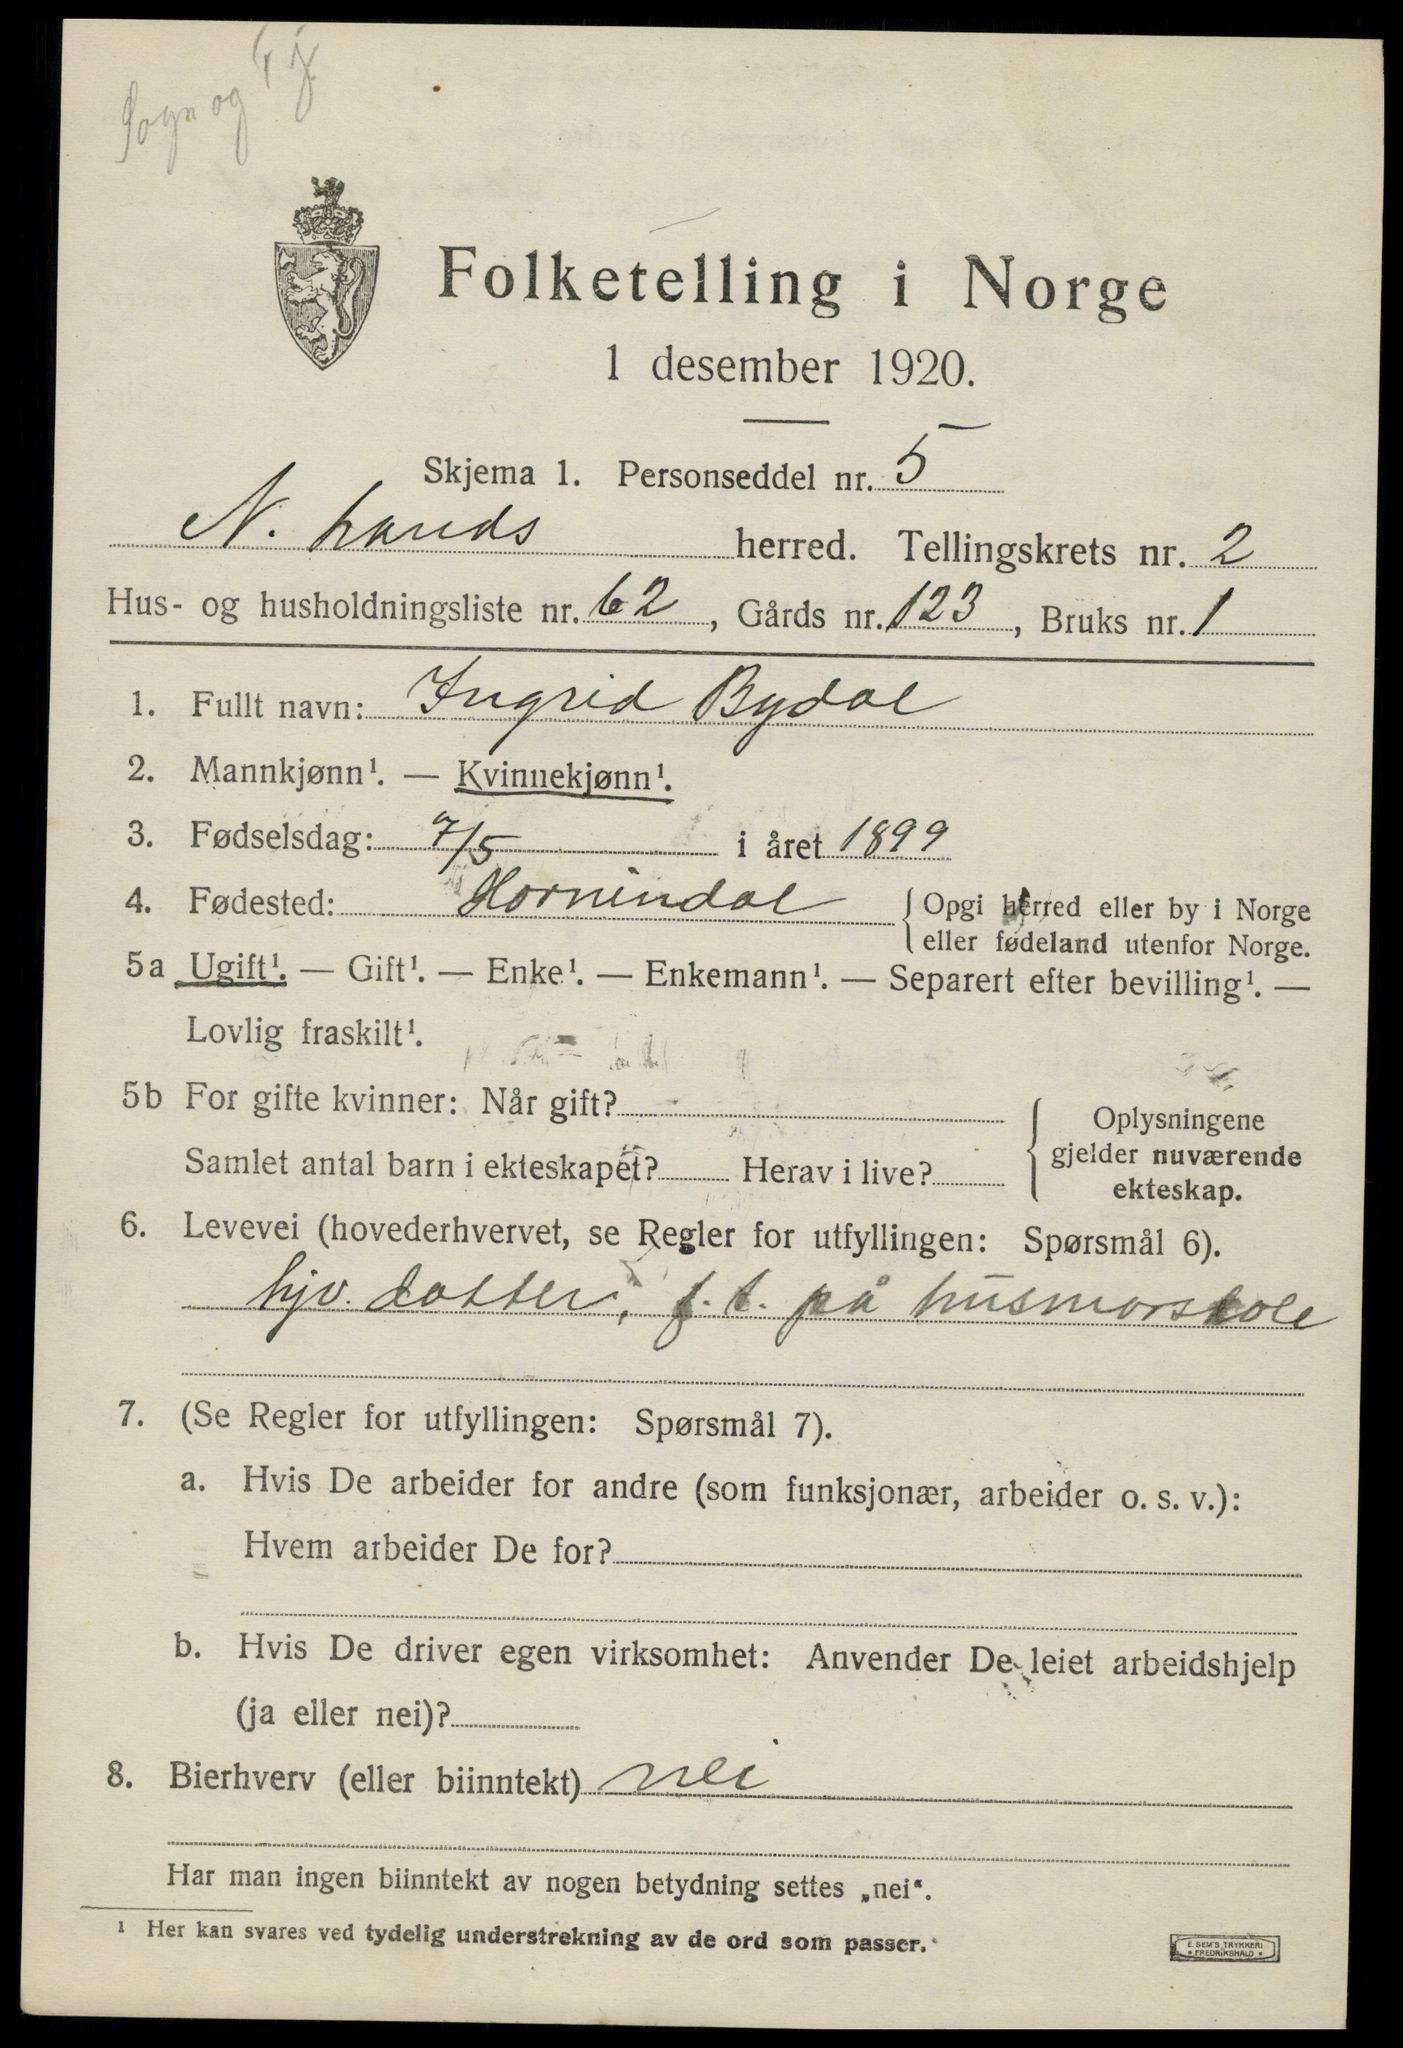 Sogn og Fj
Folketelling i Norge
1 desember 1920.
Skjema 1. Personseddel nr. 5
N. Lands herred. Tellingskrets nr. 2
Hus- og husholdningsliste nr. 62, Gårds nr. 123, Bruks nr. 1
1. Fullt navn: Ingrid Bydal
2. Mannkjønn¹. — Kvinnekjønn¹.
3. Fødselsdag: 7/5 i året 1899
4. Fødested: Hornindal { Opgi herred eller by i Norge
eller fødeland utenfor Norge.
5a Ugift¹. — Gift¹. — Enke¹. — Enkemann¹. — Separert efter bevilling¹. —
Lovlig fraskilt¹.
5b For gifte kvinner: Når gift?
Samlet antal barn i ekteskapet? Herav i live?
{ Oplysningene
gjelder nuværende
ekteskap.
6. Levevei (hovederhvervet, se Regler for utfyllingen: Spørsmål 6).
hjv. datter, f. t. på husmorskole
7. (Se Regler for utfyllingen: Spørsmål 7).
a. Hvis De arbeider for andre (som funksjonær, arbeider o. s. v.):
Hvem arbeider De for?
b. Hvis De driver egen virksomhet: Anvender De leiet arbeidshjelp
(ja eller nei)?
8. Bierhverv (eller biinntekt) nei
Har man ingen biinntekt av nogen betydning settes „nei“.
¹ Her kan svares ved tydelig understrekning av de ord som passer.
E. SEM'S TRYKKERI
• FREDRIKSHALD •